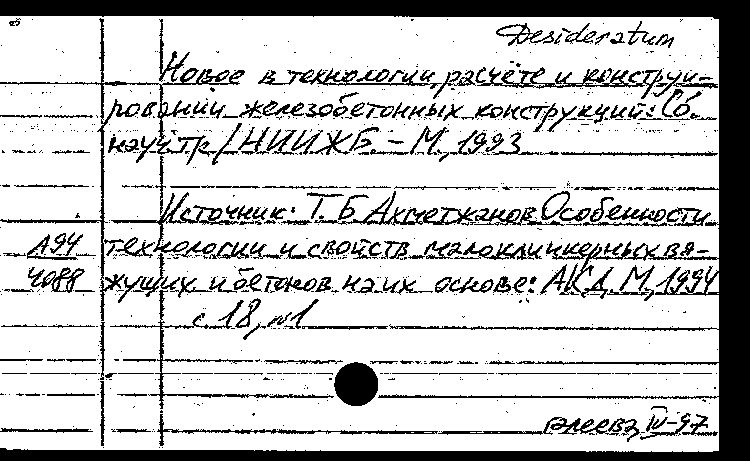 Desideratum
Новое в технологии, расчёте и конструи-
ровании железобетонных конструкций: Сб.
науч. тр. / НИИЖБ. - М., 1993
Источник: Т. Б. Ахметжанов Особенности
А94 технологии и свойств малоклинкерных вя-
4088 жущих и бетонов на их основе: АКД. М., 1994
с. 18, №1
IV-97